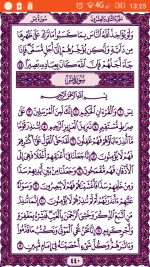 13:25
سُورَةُ يسٓ الجُزْءُ الثَّانِي وَالعِشْرُونَ
وَلَوْ يُؤَاخِذُ ٱللَّهُ ٱلنَّاسَ بِمَا كَسَبُوا۟ مَا تَرَكَ عَلَىٰ ظَهْرِهَا
مِن دَآبَّةٍ وَلَٰكِن يُؤَخِّرُهُمْ إِلَىٰٓ أَجَلٍ مُّسَمًّى ۖ فَإِذَا
جَآءَ أَجَلُهُمْ فَإِنَّ ٱللَّهَ كَانَ بِعِبَادِهِۦ بَصِيرًۢا ٤٥
سُورَةُ يسٓ
بِسْمِ ٱللَّهِ ٱلرَّحْمَٰنِ ٱلرَّحِيمِ
يسٓ ١ وَٱلْقُرْءَانِ ٱلْحَكِيمِ ٢ إِنَّكَ لَمِنَ ٱلْمُرْسَلِينَ ٣ عَلَىٰ
صِرَٰطٍ مُّسْتَقِيمٍ ٤ تَنزِيلَ ٱلْعَزِيزِ ٱلرَّحِيمِ ٥ لِتُنذِرَ قَوْمًا
مَّآ أُنذِرَ ءَابَآؤُهُمْ فَهُمْ غَٰفِلُونَ ٦ لَقَدْ حَقَّ ٱلْقَوْلُ عَلَىٰٓ أَكْثَرِهِمْ
فَهُمْ لَا يُؤْمِنُونَ ٧ إِنَّا جَعَلْنَا فِىٓ أَعْنَٰقِهِمْ أَغْلَٰلًا فَهِىَ إِلَى
ٱلْأَذْقَانِ فَهُم مُّقْمَحُونَ ٨ وَجَعَلْنَا مِنۢ بَيْنِ أَيْدِيهِمْ سَدًّا
وَمِنْ خَلْفِهِمْ سَدًّا فَأَغْشَيْنَٰهُمْ فَهُمْ لَا يُبْصِرُونَ ٩ وَسَوَآءٌ
عَلَيْهِمْ ءَأَنذَرْتَهُمْ أَمْ لَمْ تُنذِرْهُمْ لَا يُؤْمِنُونَ ١٠ إِنَّمَا تُنذِرُ
مَنِ ٱتَّبَعَ ٱلذِّكْرَ وَخَشِىَ ٱلرَّحْمَٰنَ بِٱلْغَيْبِ ۖ فَبَشِّرْهُ بِمَغْفِرَةٍ
وَأَجْرٍ كَرِيمٍ ١١ إِنَّا نَحْنُ نُحْىِ ٱلْمَوْتَىٰ وَنَكْتُبُ مَا قَدَّمُوا۟
وَءَاثَٰرَهُمْ ۚ وَكُلَّ شَىْءٍ أَحْصَيْنَٰهُ فِىٓ إِمَامٍ مُّبِينٍ ١٢
٤٤٠